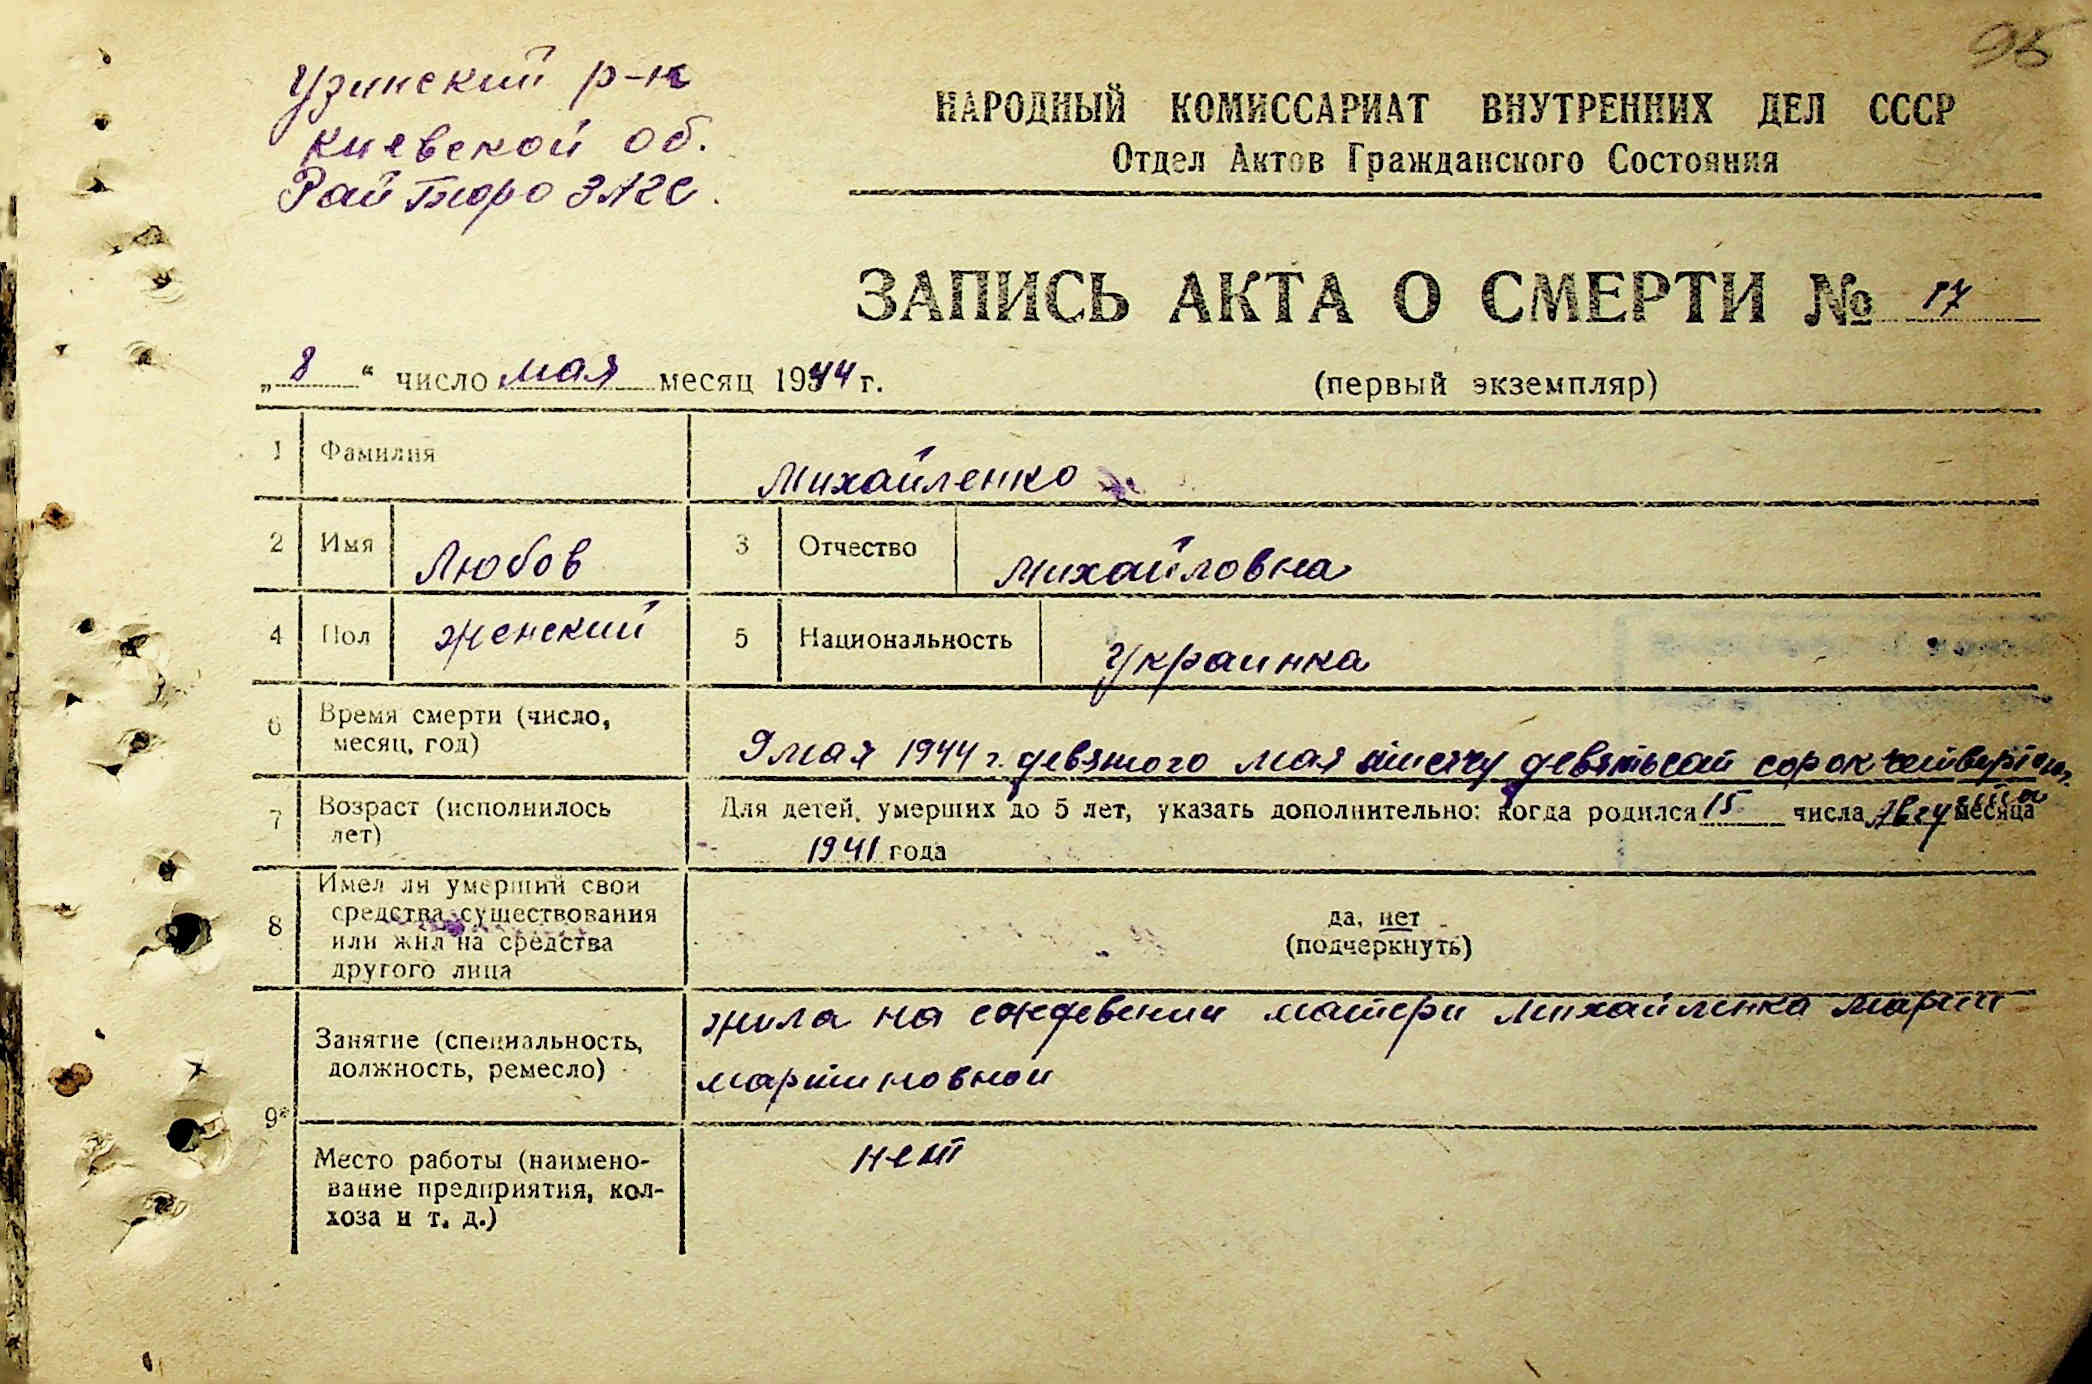 95
Узинский р-н
Киевской об.
Рай Бюро ЗАГС.
НАРОДНЫЙ КОМИССАРИАТ ВНУТРЕННИХ ДЕЛ СССР
Отдел Актов Гражданского Состояния
ЗАПИСЬ АКТА О СМЕРТИ № 17
„8“ число мая месяц 1944 г. (первый экземпляр)
1 Фамилия Михайленко
2 Имя Любов 3 Отчество Михайловна
4 Пол женский 5 Национальность Украинка
6 Время смерти (число, месяц, год) 9 мая 1944 г. девятого мая тысячу девятьсот сорок четвертого
7 Возраст (исполнилось лет) Для детей, умерших до 5 лет, указать дополнительно: когда родился 15 числа Августа месяца
1941 года
8 Имел ли умерший свои
средства существования
или жил на средства
другого лица
да, нет
(подчеркнуть)
9*
Занятие (специальность,
должность, ремесло)
жила на мждевении матери Михайленко Марии
Мартиновной
Место работы (наимено-
вание предприятия, кол-
хоза и т. д.)
нет